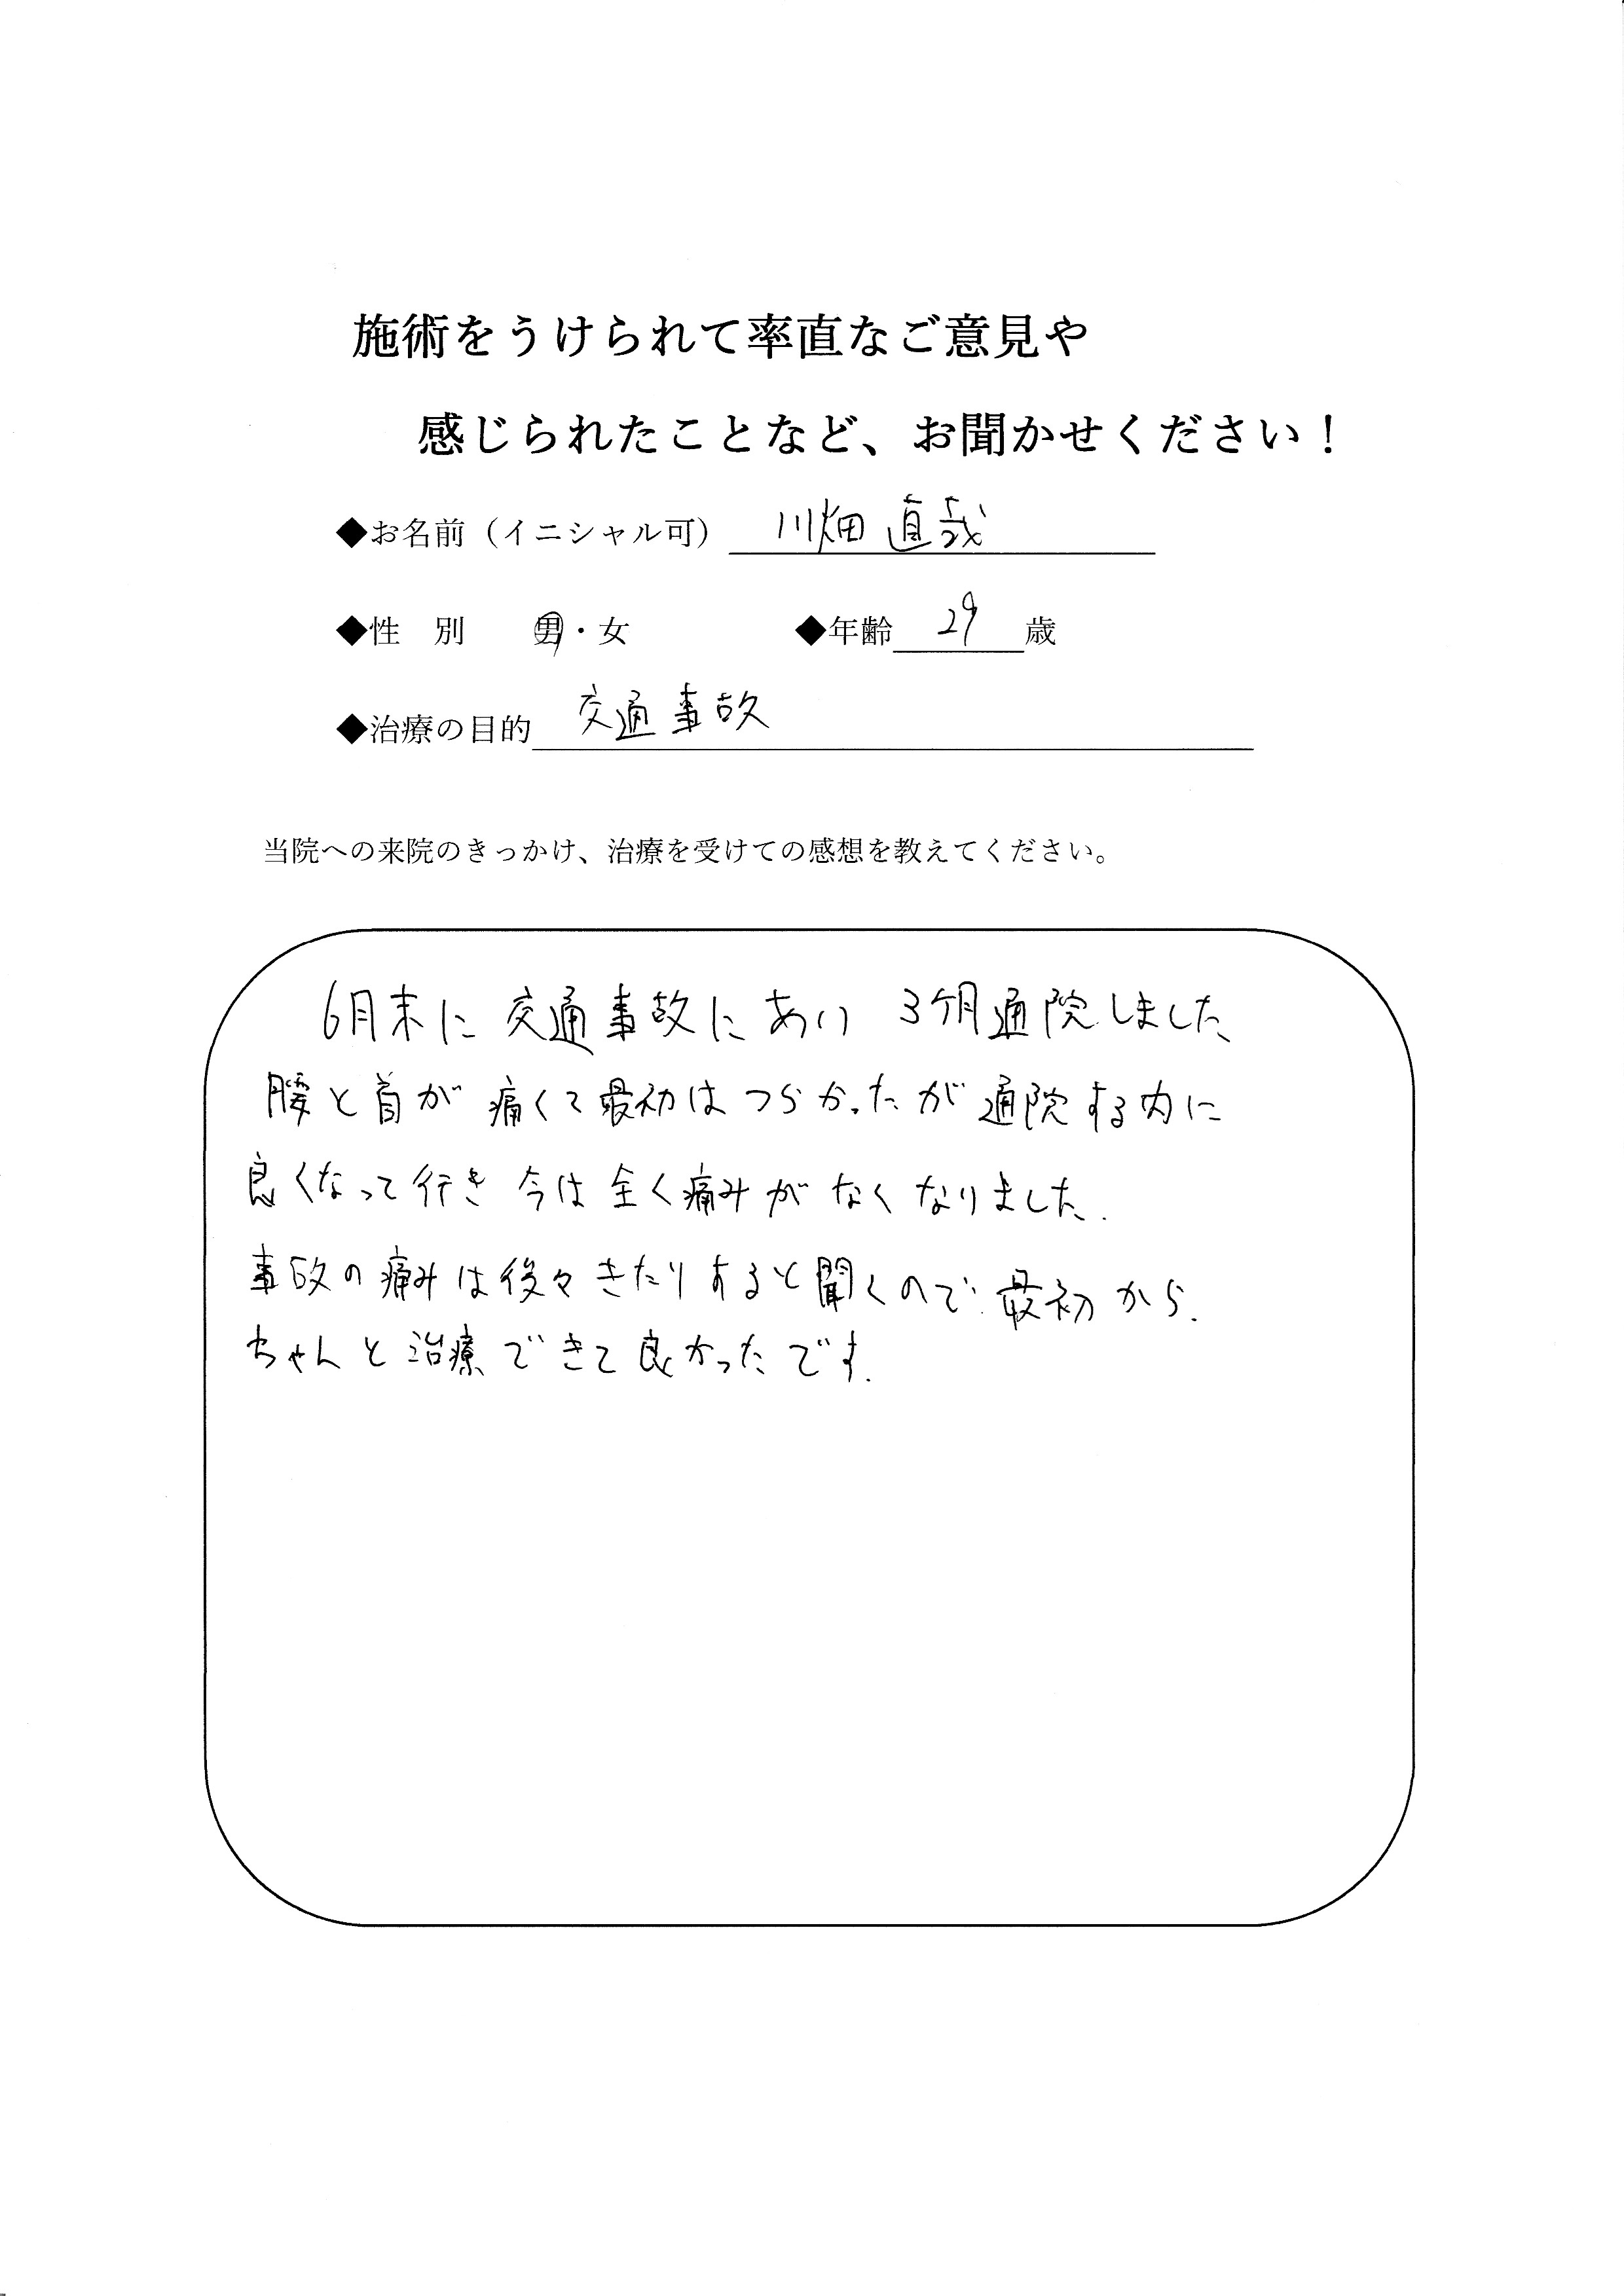 施術をうけられて率直なご意見や
感じられたことなど、お聞かせください！
◆お名前（イニシャル可） 川畑 直哉
◆性　別　男・女　◆年齢 29 歳
◆治療の目的 交通事故
当院への来院のきっかけ、治療を受けての感想を教えてください。
6月末に 交通事故にあい 3ケ月通院しました
腰と首が 痛くて最初は つらかったが 通院する内に
良くなって行き 今は 全く痛みが なくなりました.
事故の痛みは後々きたりすると聞くので 最初から.
ちゃんと治療できて良かったです.